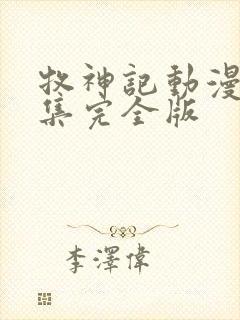 牧神記動漫
集完全版
李澤偉